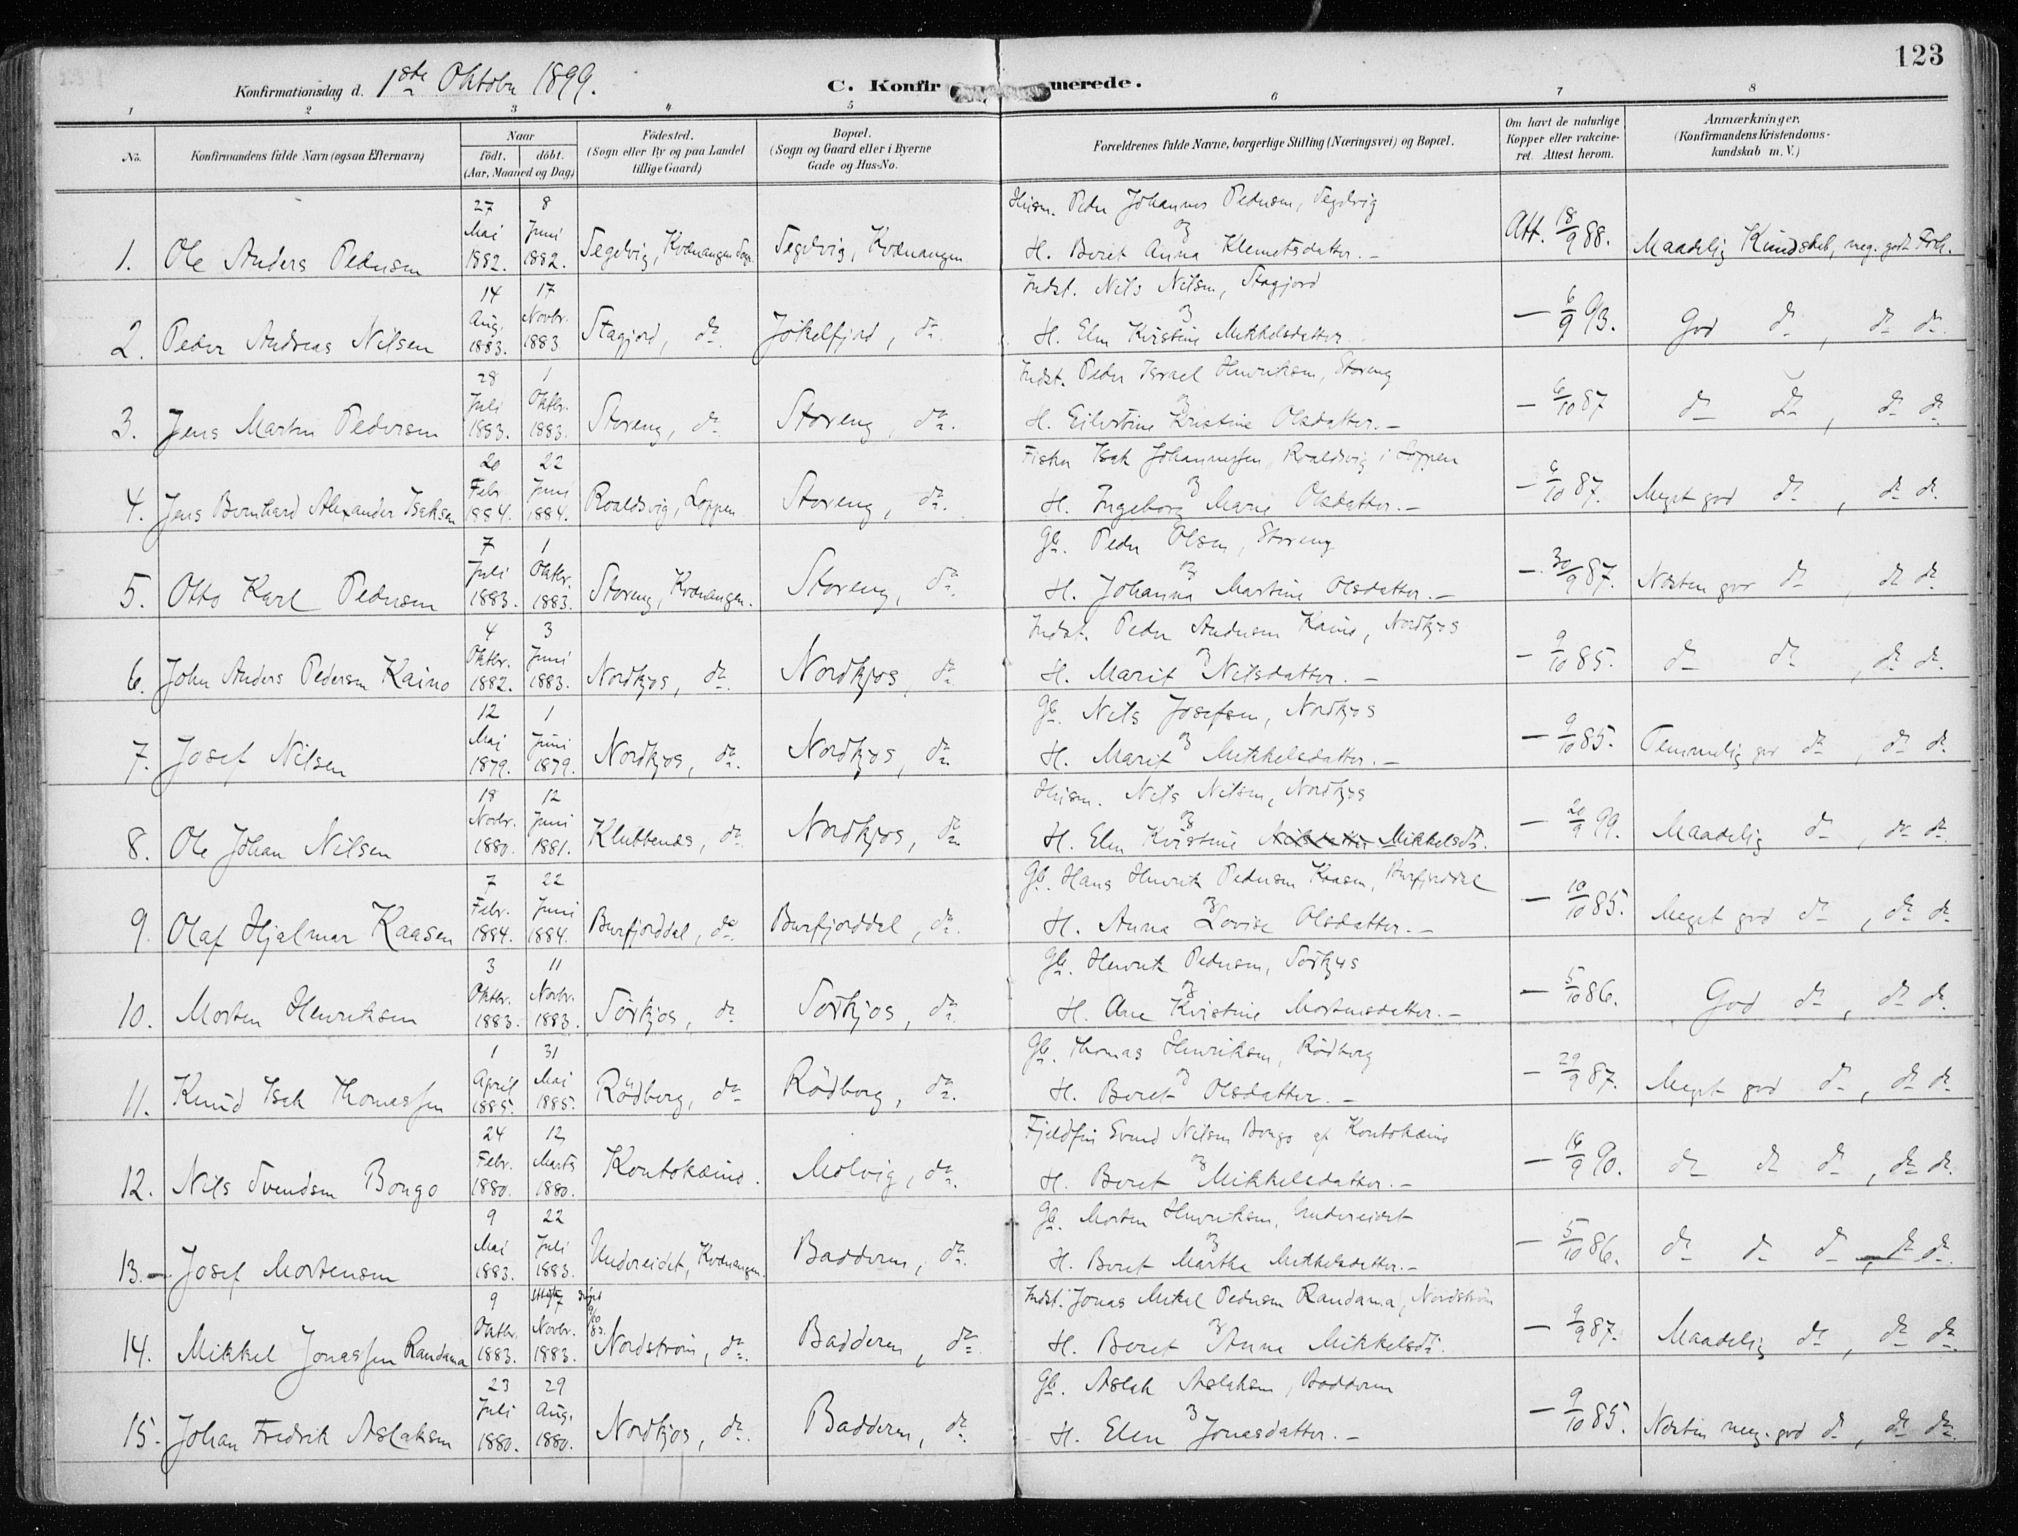 123
Konfirmationsdag d. 1ste Oktober 1899. C. Konfir merede.
1 2 3 4 5 6 7 8
No. Konfirmandens fulde Navn (ogsaa Efternavn) Naar födt. döbt. (Aar, Maaned og Dag) Födested. (Sogn eller By og paa Landet tillige Gaard) Bopæl. (Sogn og Gaard eller i Byerne Gade og Hus-No. Forældrenes fulde Navne, borgerlige Stilling (Næringsvei) og Bopæl. Om havt de naturlige Kopper eller vakcineret. Attest herom. Anmærkninger. (Konfirmandens Kristendomskundskab m. V.)
1. Ole Anders Pedersen 27 Mai 1882. 8 Juni 1882. Segelvig, Kvænangen Sogn Segelvig, Kvænangen Husm. Peder Johannes Pedersen, Segelvig
og
H. Beret Anna Klemetsdatter. — Att. 18/9 88. Maadelig Kundskab, meg. godt Forh.
2. Peder Andreas Nilsen 14 Aug. 1883. 17 Novbr. 1883 Stagjord, do. Jökelfjord, do. Indst. Nils Nilsen, Stagjord
og
H. Elen Kristine Mikkelsdatter. — 6/9 93. God do, do do.
3. Jens Martin Pedersen 28 Juli 1883. 1 Oktbr. 1883. Storeng, do. Storeng, do. Indst. Peder Israel Henriksen, Storeng
og
H. Eilertine Kristine Olsdatter. — — 6/10 87 do do, do do.
4. Jens Bernhard Alexander Isaksen 20 Febr. 1884. 22 Juni 1884. Roaldsvig, Loppen Storeng, do. Fisker Isak Johannessen, Roaldsvig i Loppen
og
H. Ingeborg Marie Olsdatter. — — 6/10 87. Meget god do, do do.
5. Otto Karl Pedersen 7 Juli 1883. 1 Oktbr. 1883. Storeng, Kvænangen. Storeng, do. Gb. Peder Olsen, Storeng
og
H. Johanna Martine Olsdatter. — — 30/9 87. Næsten god do, do do.
6. John Anders Pedersen Kaino 4 Oktbr. 1882. 3 Juni 1883. Nordkjos, do. Nordkjos, do. Indst. Peder Andersen Kaino, Nordkjos
og
H. Marit Nilsdatter. — — 9/10 85. do do, do do.
7. Josef Nilsen 12 Mai 1879. 1 Juni 1879. Nordkjos, do. Nordkjos, do. Gb. Nils Josefsen, Nordkjos
og
H. Marit Mikkelsdatter. — — 9/10 85. Temmelig god do, do do.
8. Ole Johan Nilsen 18 Novbr. 1880. 12 Juni 1881. Klubbenæs, do. Nordkjos, do. Husm. Nils Nilsen, Nordkjos
og
H. Elen Kristine Nilsdatter Mikkelsdt. — 20/9 99. Maadelig do, do do.
9. Olaf Hjalmar Kaasen 7 Febr. 1884. 22 Juni 1884. Burfjorddal, do. Burfjorddal, do. Gb. Hans Henrik Pedersen Kaasen, Burfjorddal
og
H. Anna Lovise Olsdatter. — — 10/10 85. Meget god do, do do.
10. Morten Henriksen 3 Oktbr. 1883. 11 Novbr. 1883. Sörkjos, do. Sörkjos, do. Gb. Henrik Pedersen, Sörkjos
og
H. Ane Kristine Mortensdatter. — — 5/10 86. God do, do do.
11. Knud Isak Thomassen 1 April 1885. 31 Mai 1885. Rödberg, do. Rödberg, do. Gb. Thomas Henriksen, Rödberg
og
H. Beret Olsdatter. — — 29/9 87. Meget god do, do do.
12. Nils Svendsen Bongo 24 Febr. 1880. 12 Marts 1880. Koutokæino. Molvig, do. Fjeldfin Svend Nilsen Bongo af Koutokæino
og
H. Beret Mikkelsdatter. — — 16/9 90. do do do, do do.
13. — Josef Mortensen 9 Mai 1883. 22 Juli 1883. Undereidet, Kvænangen. Badderen, do. Gb. Morten Henriksen, Undereidet
og
H. Beret Martha Mikkelsdatter. — — 5/10 86. do do do, do do.
14. Mikkel Jonassen Randama 9 Oktbr. 1883. Novbr. 1883. Nordström, do. Badderen, do. Indst. Jonas Mikal Pedersen Randama, Nordström
og
H. Beret Anna Mikkelsdt. — 9/9 87. Maadelig do, do do.
15. Johan Fredrik Aslaksen 23 Juli 1880. 29 Aug. 1880. Nordkjos, do. Badderen, do. Gb. Aslak Aslaksen, Badderen
og
H. Elen Jonasdatter. — — 9/10 85. Næsten meg. god do, do do.